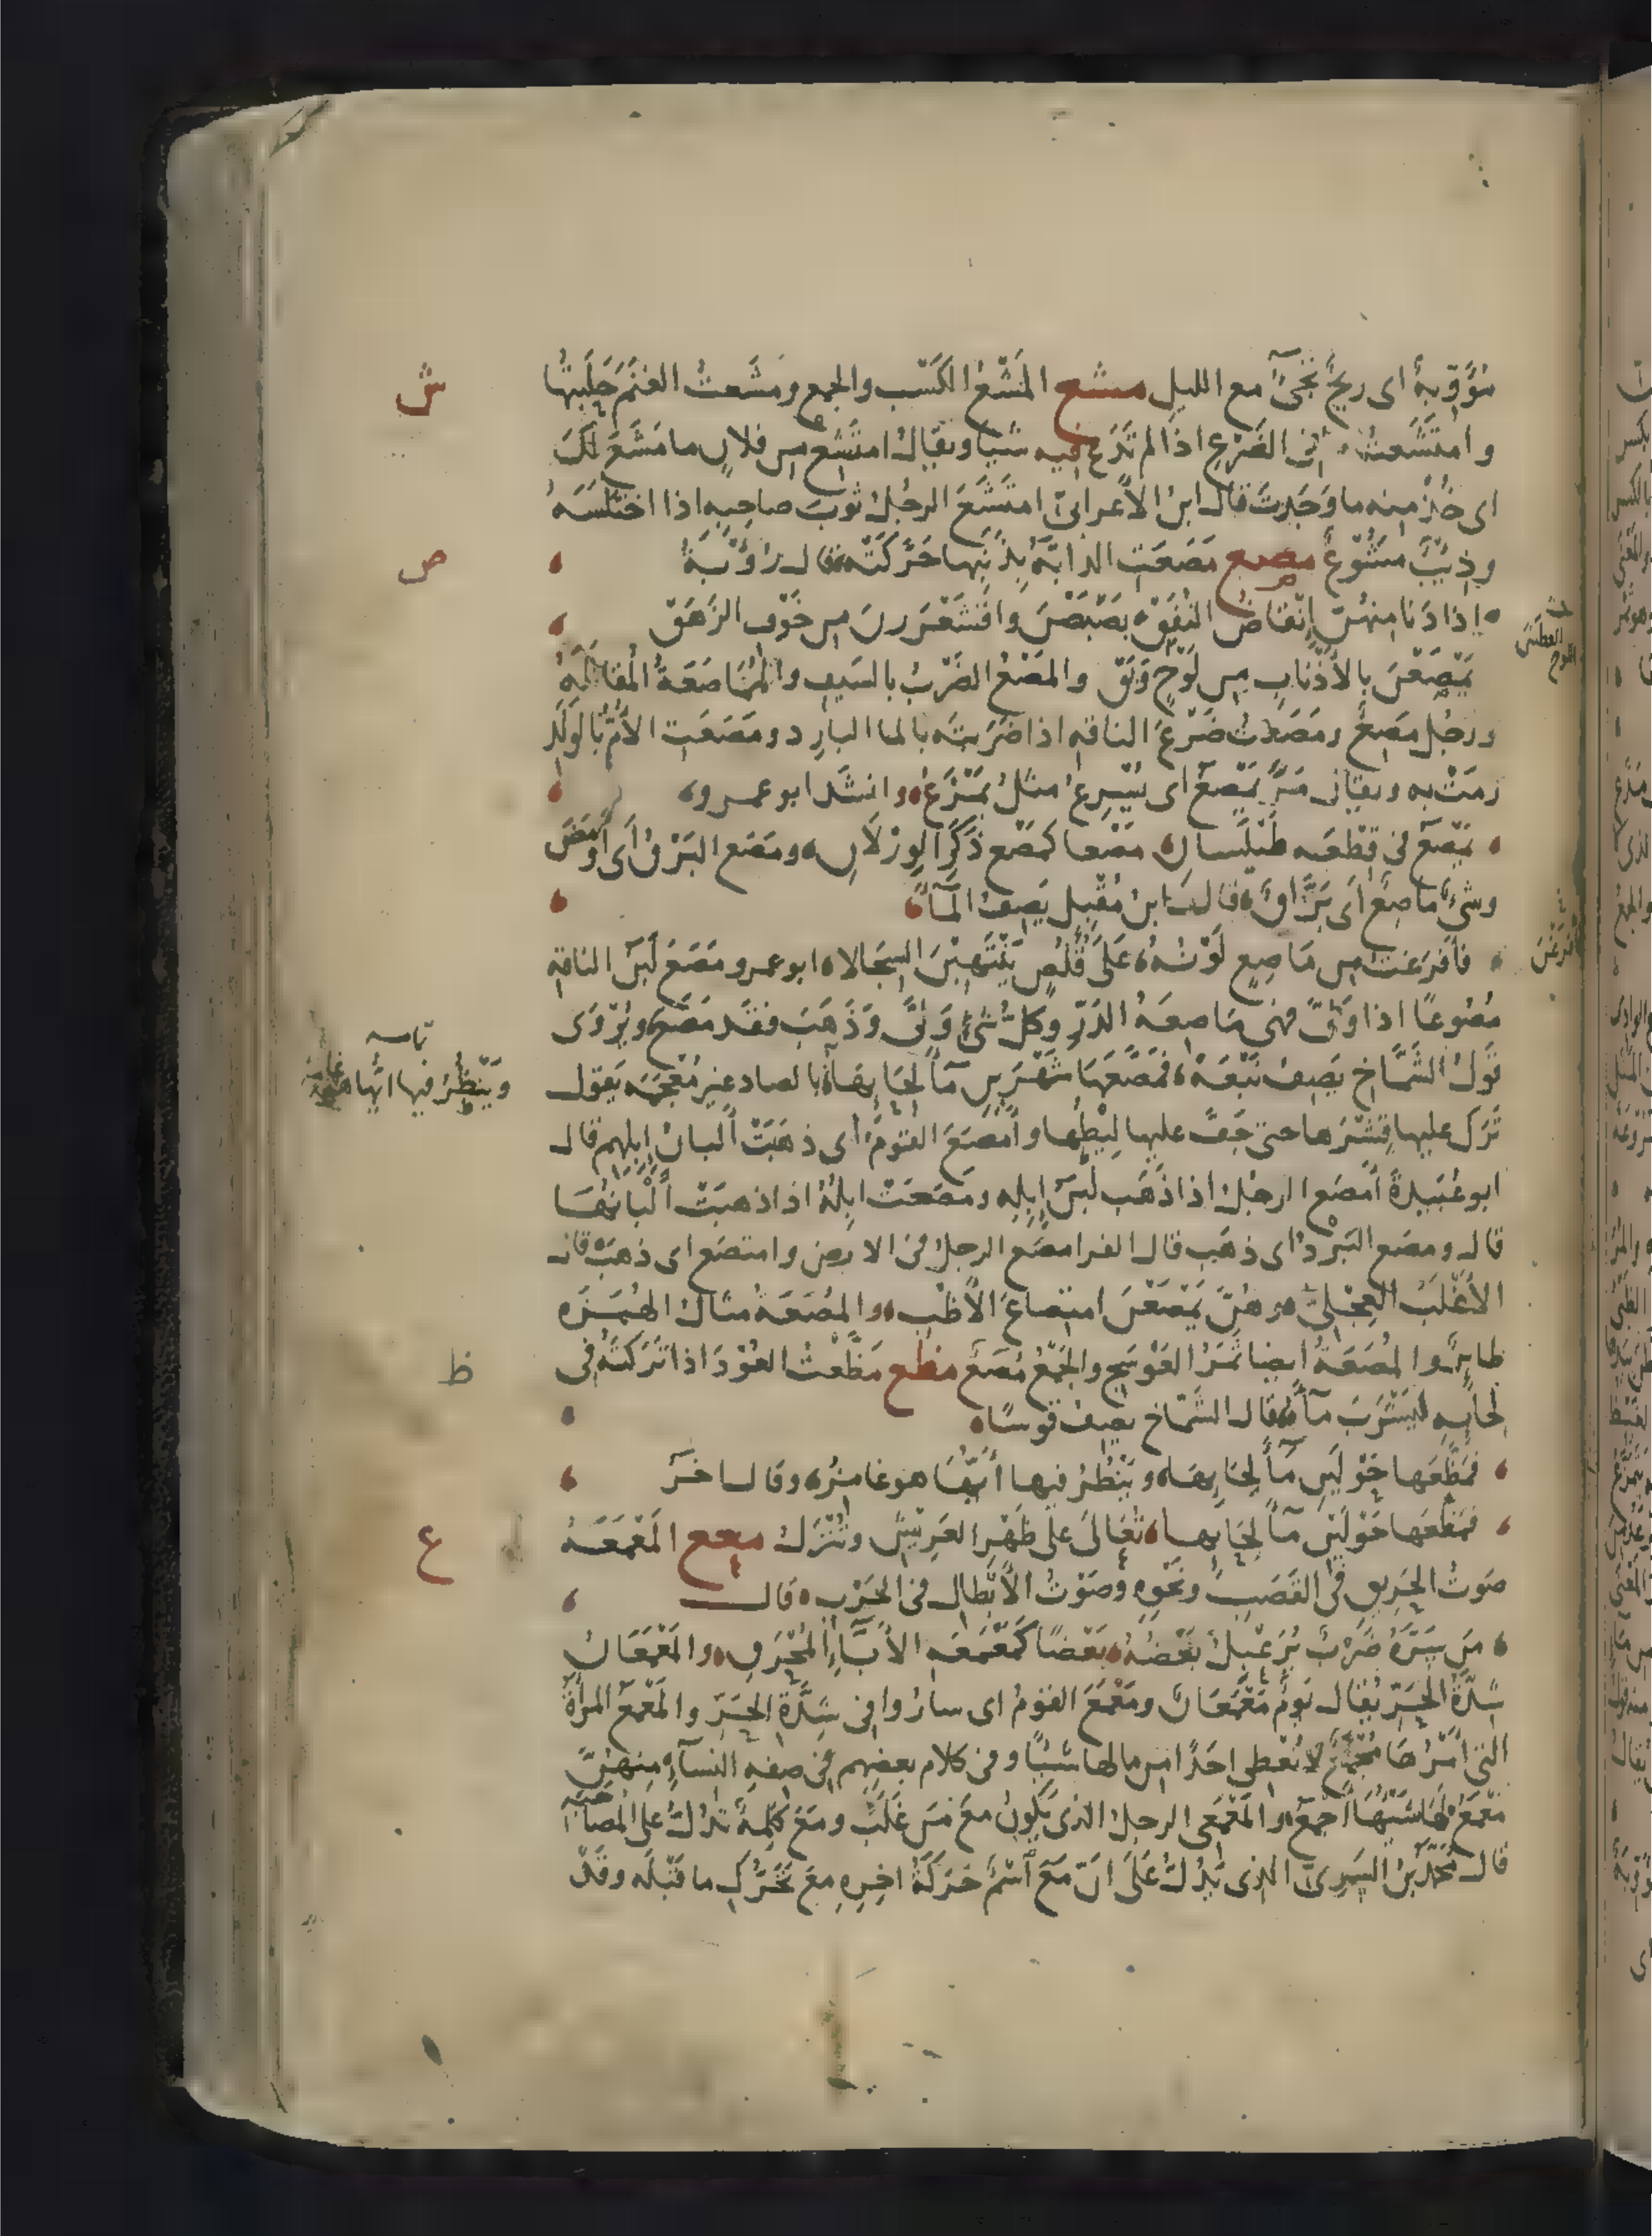 مُؤَوِّبةٌ اى ريحٌ تجىُٔ مع الليل مشع المَشْعُ الكَسْب والجمع ومَشَعتُ الغنَمَ حَلَبتُها
وامتَشَعتُ فى الضَرْعِ اذا لم تَدَع فيه شيًا ويقالُ امتَشِع من فلانٍ ما مَشَعَ لَكَ
اى خُذْ مِنه ما وَجَدتَ قال ابن الأعرابىّ امتَشَعَ الرجُلُ ثوبَ صاحِبِه اذا اختَلَسَهُ
وذِيبٌ مَشُوعٌ مصع مَصَعَتِ الدابَّةُ بِذَنَبِها حَرَّكَتْه قال رُؤبَةُ
اذا دَنا مِنهُنّ إنقاضُ النُقَقْ بَصْبَصْنَ واقْشَعْرَرنَ من خَوْفِ الزَهَقْ
يَمْصَعْنَ بِالأذْنَابِ مِن لُوْحٍ وَبَقّ والمَصْعُ الضَرْبُ بالسَيفِ والمُمَاصَعَةُ المُقاتَلَةُ
ورجُل مَصِعٌ ومَصَعْتُ ضَرْعَ الناقهِ اذا ضَرَبتَه بالماا البارِد ومَصَعَتِ الأُمُّ بالوَلَدِ
رمَتْ به ويقال مَرَّ يَمْصَعُ اى يُسْرِعُ مثلُ يَمْزَعُ وانشَد ابو عمرو
يَمْصَعُ فى قِطْعه طَيْلَسانِ مَصْعا كمَصْعِ ذَكَرِ الوِرْلَانِ ومَصَع البَرْقُ أى أومَضَ
وشىٌٔ مَاصِعٌ أى بَرَّاقٌ قال ابن مُقْبِلٍ يَصِفُ المَآءَ
فأَفْرَغتُ مِن مَاصِعٍ لَوْنُهُ عَلَى قُلُصٍ يَنْتَهِبْنَ السِجَالا ابو عمرو مَصَعَ لَبَنُ الناقهِ
مُصُوعًا اذا وَلّىَ فهى مَاصِعَةُ الدَرِّ وكلُّ شىءٍ وَلّىَ وَذَهَبَ فقَد مَصَعَ ويُرْوَى
قَولُ الشَمَّاخِ يَصِفُ نَبْعَةً فمَصَّعَهَا شَهْرَينِ مآءَ لِحَايِهَا بالصاد غيرَ مُعْجَمَه يَقول
تَرَك عليها قِشْرَها حتى جَفّ عليها لِيْطُها وأمْصَعَ القَومُ أى ذهَبَتْ ألبانُ إبِلِهم قال
ابو عُبَيدةَ أمْصَع الرجُلُ اذا ذَهَب لَبَنُ إبِلِه ومَصَعَتْ ابِلُهُ اذا ذهبَتْ أَلْبَانُهَا
قال ومصَع البَرْدُ اى ذهَب قال الفرا مصَع الرجلُ فى الارض وامتصَع اى ذهَبَ قال
الأغْلَبُ العِجْلِىُّ وهُنَّ يَمْصَعْنَ امتِصاعَ الأظْبِ والمُصَعَةُ مثال الهُمَزَه
طايِرٌ والمُصَعَةُ ايضا ثَمَرُ العَوْسَجِ والجَمْعُ مُصَعٌ مظع مَظَّعْتُ العُوْدَ اذا تَرَكتَهُ فى
لحايِهِ لِيَشْرَبَ مآءَهُ قال الشَمّاخ يصِفُ قوسًا
فمَظَّعَها حَوْلَينِ مآءَ لِحَايِهَا ويَنْظُرُ فيها أيَّهَا هو غامِزُه وقال اخَرُ
فمَظَّعَها حَوْلَيْنِ مآءَ لِحَايِهَا تُعَالَى على ظَهْرِ العَرِيْشِ وتُنْزَلُ معع المَعْمَعَهُ
صَوتُ الحَرِيقِ فى القَصَبِ ونَحْوِهِ وصَوْتُ الأبْطالِ فى الحَرْبِ قال
مَن سَرَّهُ ضَرْبٌ يُرَعْبِلُ بَعْضُهُ بَعْضًا كمَعْمَعهِ الأبَاءِ المُحْرَقِ والمَعْمَعَانُ
شِدَّةُ الحَرِّ يُقال يَومٌ مَعْمَعَانٌ ومَعْمَعَ القَومُ اى سارُوا فى شِدَّةِ الحَرِّ والمَعْمَعُ المرأةُ
التى أمْرُهَا مُجْمَعٌ لا تُعْطِى احَدًا من مالها شيْـًا وفى كلام بعضِهِم فى صفهِ النسآءِ مِنهُنَّ
مَعْمَعٌ لها شَيْئُهَا أجْمَعُ والمَعْمَعِى الرجلُ الذى يَكُونُ مَعَ مَن غَلَبَ ومَعَ كَلِمةٌ تدُلُّ على المُصَاحَبَه
قال محمّد بنُ السَرِىّ الذى يَدُلُّ عَلَى انَّ مَعَ اسْمٌ حَرَكَةُ اخِرِه مَعَ تَحَرُّكِ ما قَبْلَه وقَدْ
ش
ص
ظ
ع
اللوح العطش
ويَنْظُرُ فيها ايَّها